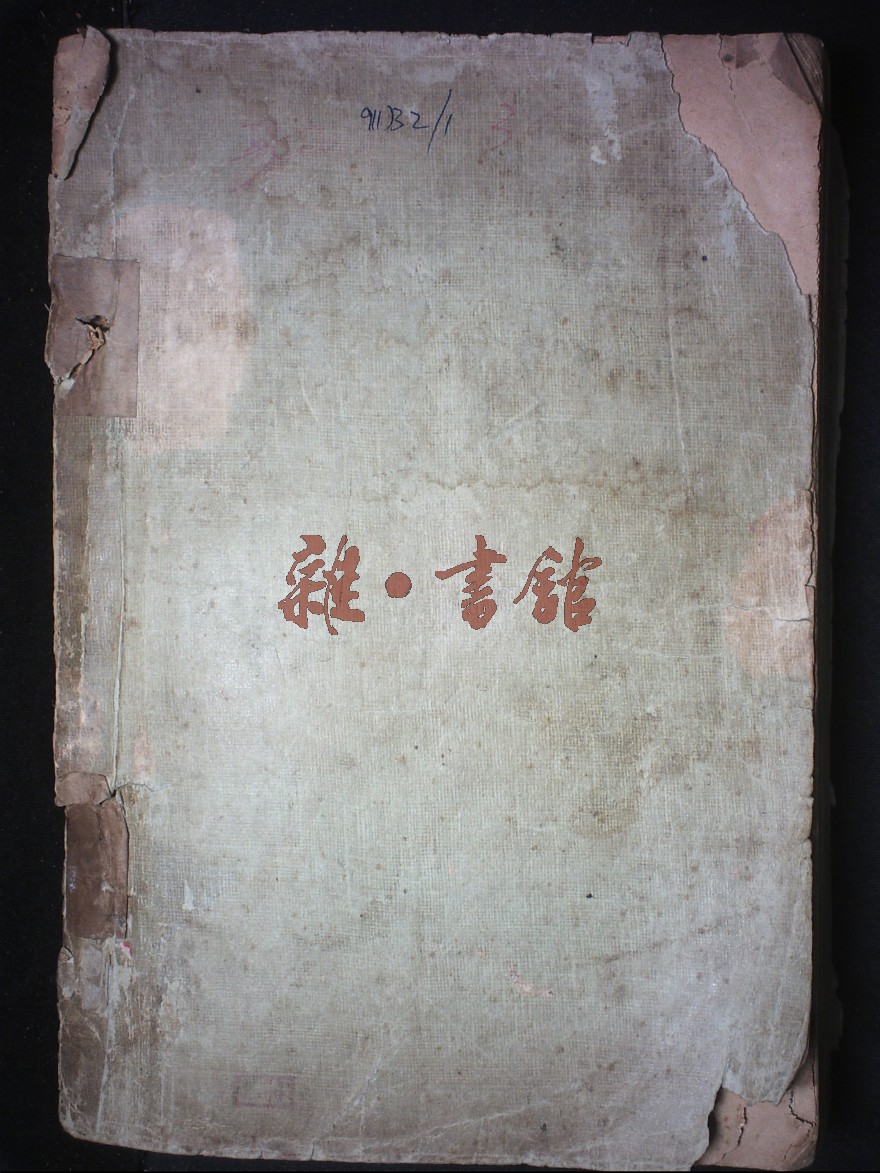 911B2/1
雜·書館